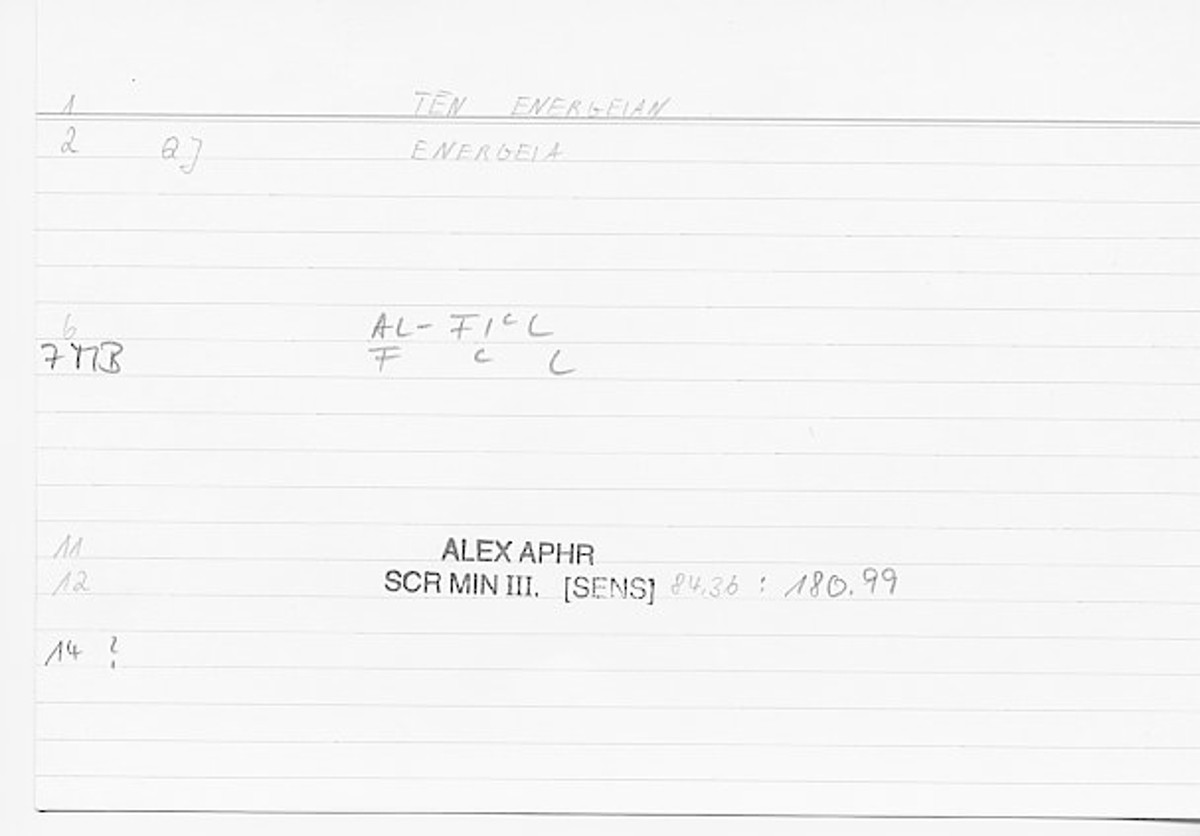 1 TĒN ENERGEIAN
2 Q] ENERGEIA
6 AL- FIᶜL
7 MB F ᶜ L
11 ALEX APHR
12 SCR MIN III. [SENS] 84,36 : 180.99
14 ?